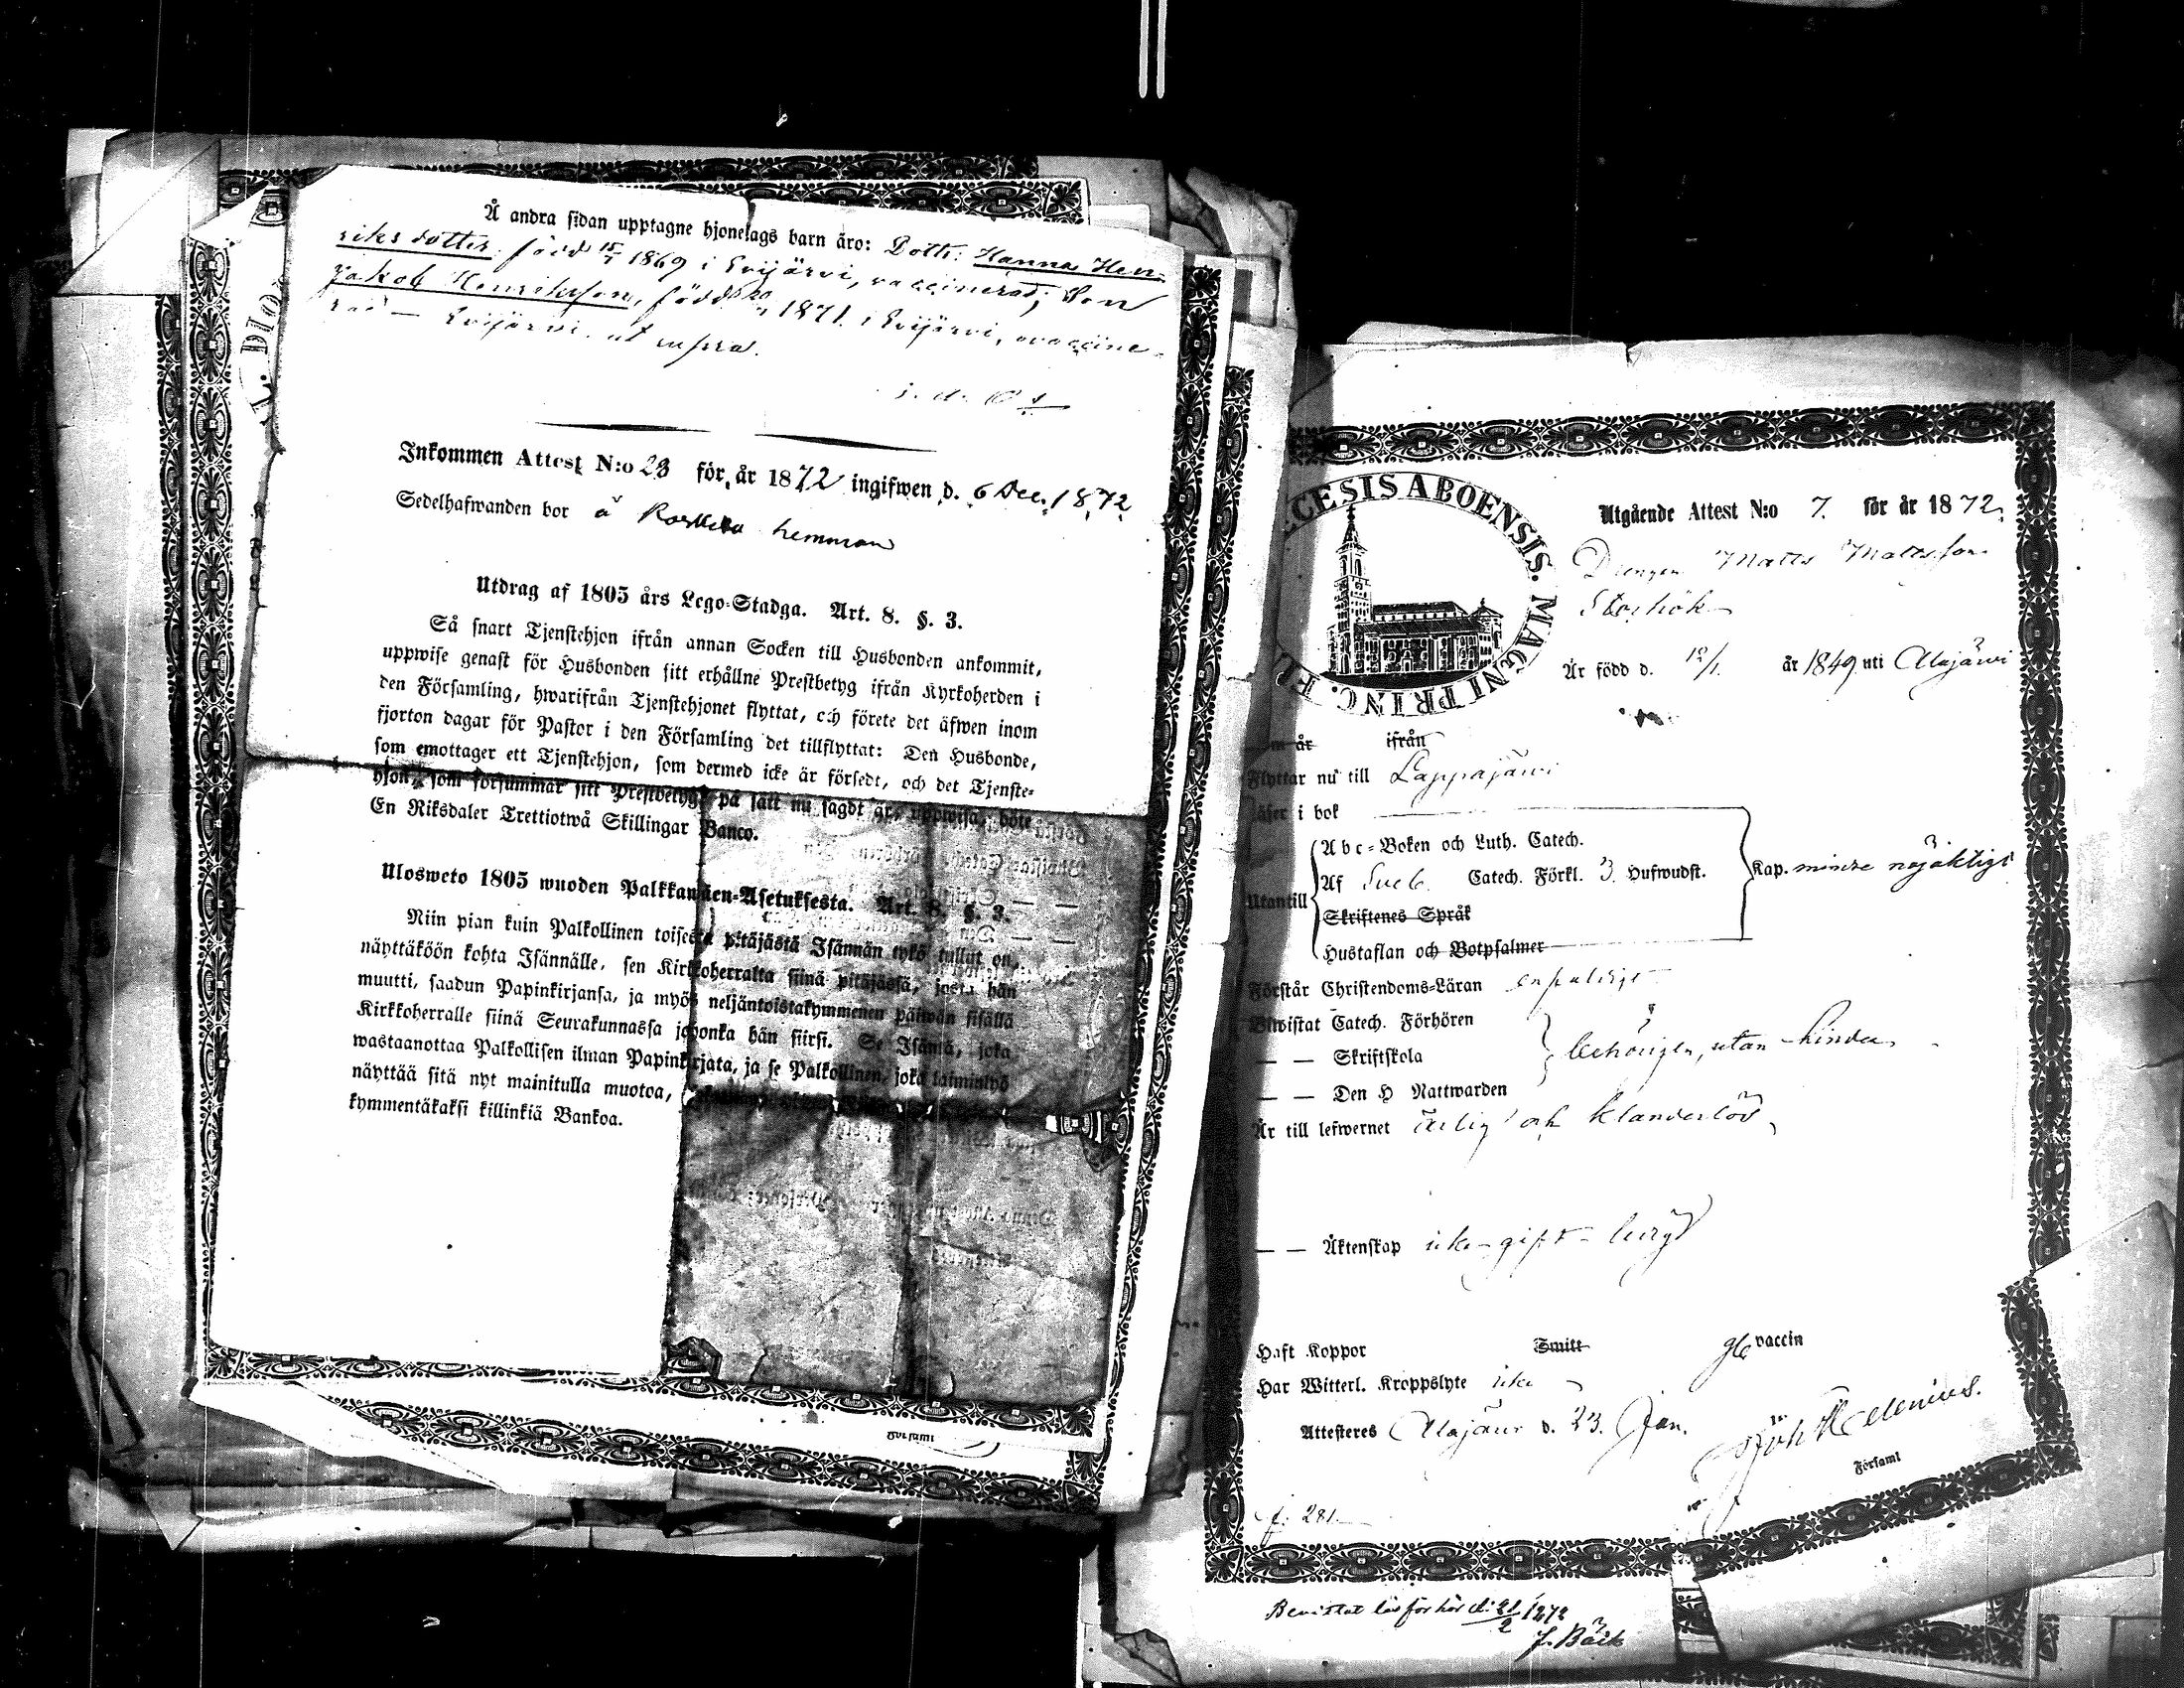 Å andra sidan upptagne hjonelags barn äro: Dottr: Hanna Hen-
riksdotter, född 15/7 1869 i Evijärvi, vaccinerad; Son
Jakob Henriksson, född 1871 i Evijärvi, ovaccine-
rad — Evijärvi ut supra.
Inkommen Attest N:o 23 för år 1872 ingifwen d. 6 Dec. 1872
Sedelhafwanden bor å hemman
Utdrag af 1805 års Lego-Stadga. Art. 8. §. 3.
Så snart Tjenstehjon ifrån annan Socken till Husbonden ankommit,
uppwise genast för Husbonden sitt erhållne Prestbetyg ifrån Kyrkoherden i
den Församling, hwarifrån Tjenstehjonet flyttat, och förete det äfwen inom
fjorton dagar för Pastor i den Församling det tillflyttat: Den Husbonde,
som emottager ett Tjenstehjon, som dermed icke är försedt, och det Tjenste-
hjon, som försummar sitt Prestbetyg på sätt nu sagdt är, uppwisa, böte
En Riksdaler Trettiotwå Skillingar Banco.
Ulosweto 1805 wuoden Palkkanden-Asetuksesta. Art. 8. §. 3.
Niin pian kuin Palkollinen toisesta pitäjästä Isännän tykö tullut on,
näyttäköön kohta Isännälle, sen Kirkkoherralta siinä pitäjässä, josta hän
muutti, saadun Papinkirjansa, ja myös neljäntoistakymmenen päiwän sisällä
Kirkkoherralle siinä Seurakunnassa johonka hän siirsi. Se Isäntä, joka
wastaanottaa Palkollisen ilman Papinkirjata, ja se Palkollinen, joka laiminlyö
näyttää sitä nyt mainitulla muotoa,
kymmentäkaksi killinkiä Bankoa.
Församl
CESIS ABOENSIS. MAGNI PRINC. F
Utgående Attest N:o 7. för år 1872.
Drengen Matts Mattsson
Storhök
Är född d. 12/1. år 1849 uti Alajärvi
ifrån
Flyttar nu till Lappajärvi
Läser i bok
Abc-Boken och Luth. Catech.
Utantill Af Sveb. Catech. Förkl. 3. Hufwudst. Kap. minre nöjaktigt
Skriftenes Språk
Hustaflan och Botpsalmer
Förstår Christendoms-Läran enfaldigt
Biwistat Catech. Förhören
— — Skriftskola behörigen, utan hinder
— — Den H Nattwarden
Är till lefwernet ärlig och klanderlös
— — Äktenskap icke gift
Haft Koppor Smitt vaccin
Har Witterl. Kroppslyte icke
Attesteres Alajärvi d. 23. Jan.
Joh Helenius.
Församl
f. 281
Bevistat läsförhör d. 21/2 1872
J. Bäck